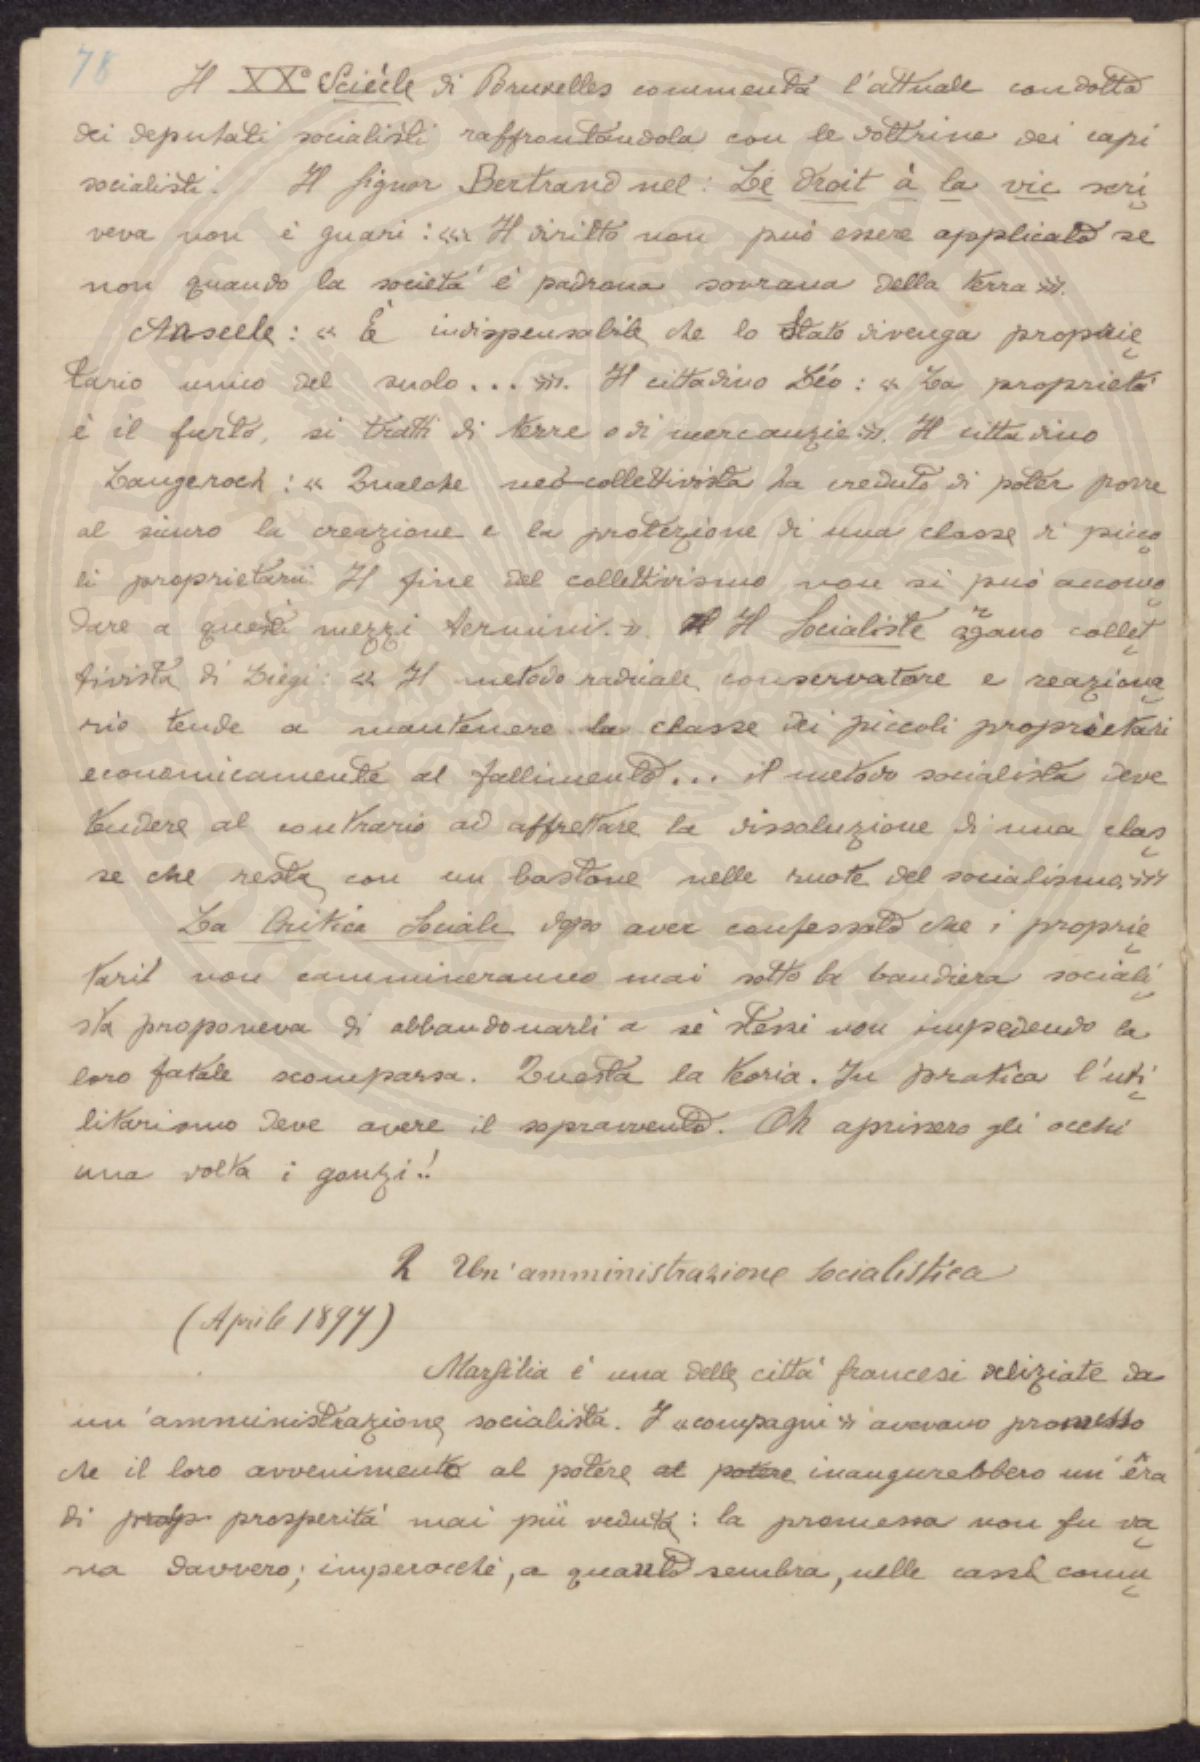 78
Il XX° Sciécle di Bruxelles commenta l'attuale condotta
dei deputati socialisti raffrontandola con le dottrine dei capi
socialisti. Il signor Bertrand nel: Le droit à la vie scri
veva non è guari: «« Il diritto non può essere applicato se
non quando la società è padrona sovrana della terra »».
Anseele: « È indispensabile che lo Stato divenga proprie
tario unico del suolo... »». Il cittadino Léo: « La proprietà
è il furto, si tratti di terre o di mercanzie ». Il cittadino
Langeroch: « Qualche neo-collettivista ha creduto di poter porre
al sicuro la creazione e la protezione di una classe di picco
li proprietarii. Il fine del collettivismo non si può accomo
dare a questi mezzi termini. ». Il Socialiste organo collet
tivista di Liegi: «« Il metodo radicale, conservatore e reaziona
rio tende a mantenere la classe dei piccoli proprietari
economicamente al fallimento... il metodo socialista deve
tendere al contrario ad affrettare la dissoluzione di una clas
se che resta con un bastone nelle ruote del socialismo.»»
La Critica Sociale dopo aver confessato che i proprie
tarii non cammineranno mai sotto la bandiera sociali
sta proponeva di abbandonarli a sè stessi non impedendo la
loro fatale scomparsa. Questa la teoria. In pratica l'uti
litarismo deve avere il sopravvento. Oh aprissero gli occhi
una volta i gonzi!!
2 Un'amministrazione socialistica
(Aprile 1897)
Marsilia è una delle città francesi deliziate da
un'amministrazione socialista. I «compagni» avevano promesso
che il loro avvenimento al potere al potere inaugurerebbero un'êra
di prosp prosperità mai più veduta: la promessa non fu va
na davvero; imperocchè, a quanto sembra, nelle casse comu